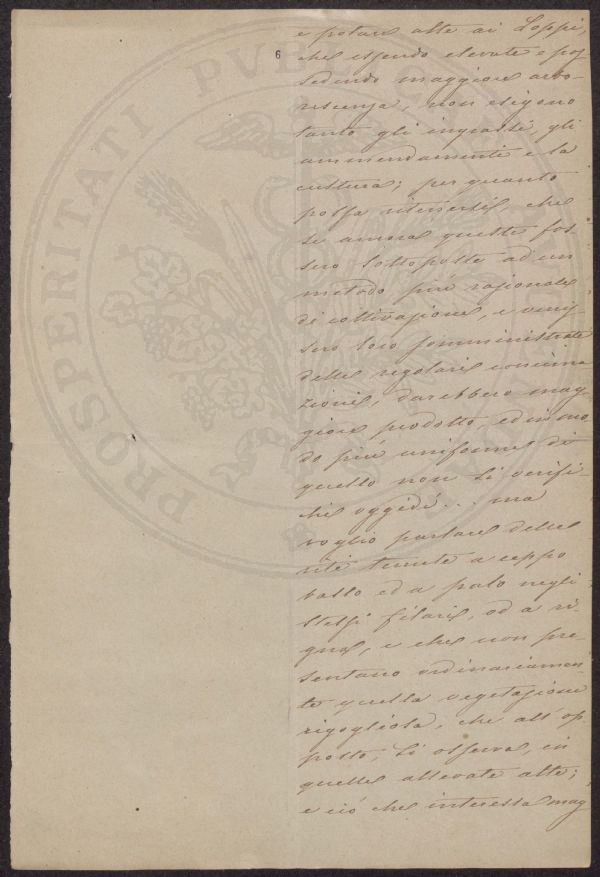 6
e potare alte ai Loppi,
che essendo elevate e pos
sedendo maggiore arbo
rescenza, non esigono
tanto gli ingrassi, gli
ammendamenti e la
cultura; per quanto
possa ritenersi, che
se ancora queste fos
sero sottoposte ad un
metodo più razionale
di coltivazione, e venis
sero loro somministrate
delle regolari concima
zioni, darebbero mag
giore prodotto, ed in mo
do più uniforme di
quello non si verifi-
chi oggidì... ma
voglio parlare delle
viti tenute a ceppo
basso ed a palo negli
stessi filari, od a vi-
gna, e che non pre-
sentano ordinariamen-
te quella vegetazione
rigogliosa, che all'op
posto, si osserva, in
quelle allevate alte;
e ciò che interessa mag
PROSPERITATI PVBL